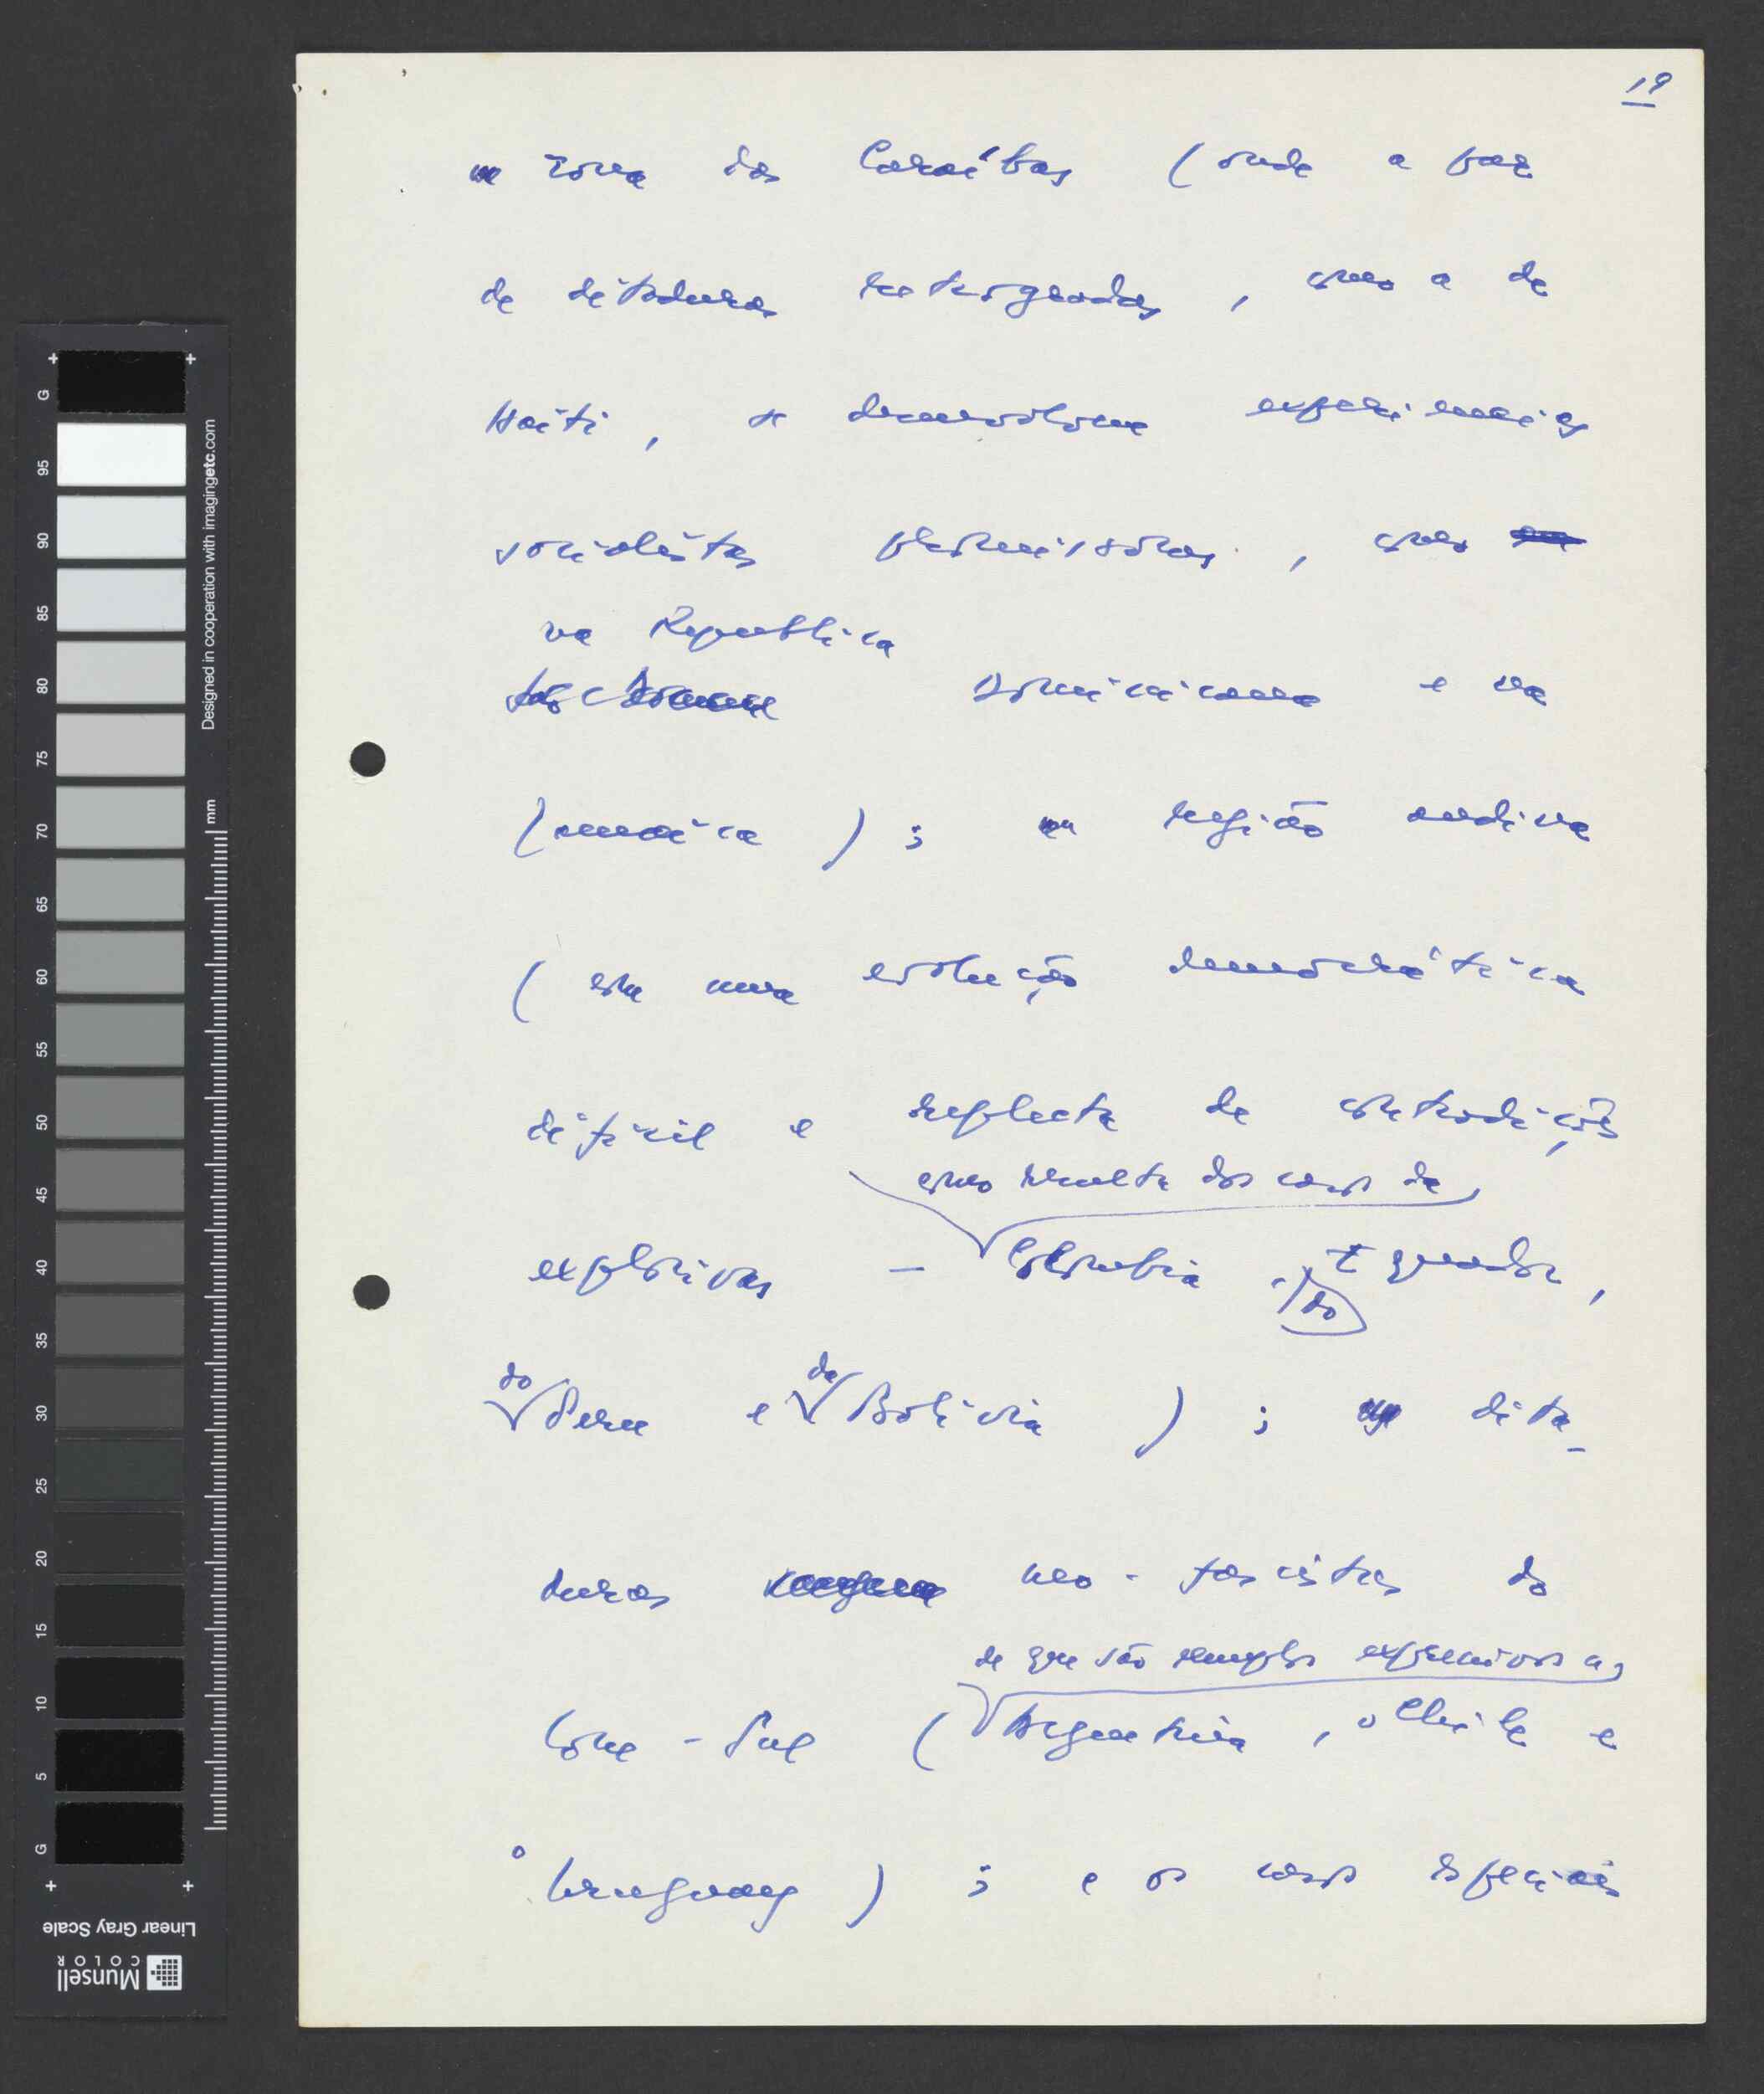 19
a zona das Caraíbas (onde a par
de ditaduras retrógradas, como a de
Haiti, se desenvolvem experiências
socialistas promissoras, como
na Republica
Dominicana e na
Jamaica); a região andina
(com uma evolução democrática
difícil e repleta de contradições
como resulta dos casos da
explosivas - Colombia, do Equador,
do Peru e da Bolívia); as dita-
duras neo-fascistas do
de que são exemplos expressivos a
Cone-Sul (Argentina, o Chile e
o Uruguay); e os casos especiais
G
95
90
85
80
75
70
65
60
55
50
45
40
35
30
25
20
15
10
5
G
mm
Designed in cooperation with imagingetc.com
Linear Gray Scale
Munsell
COLOR